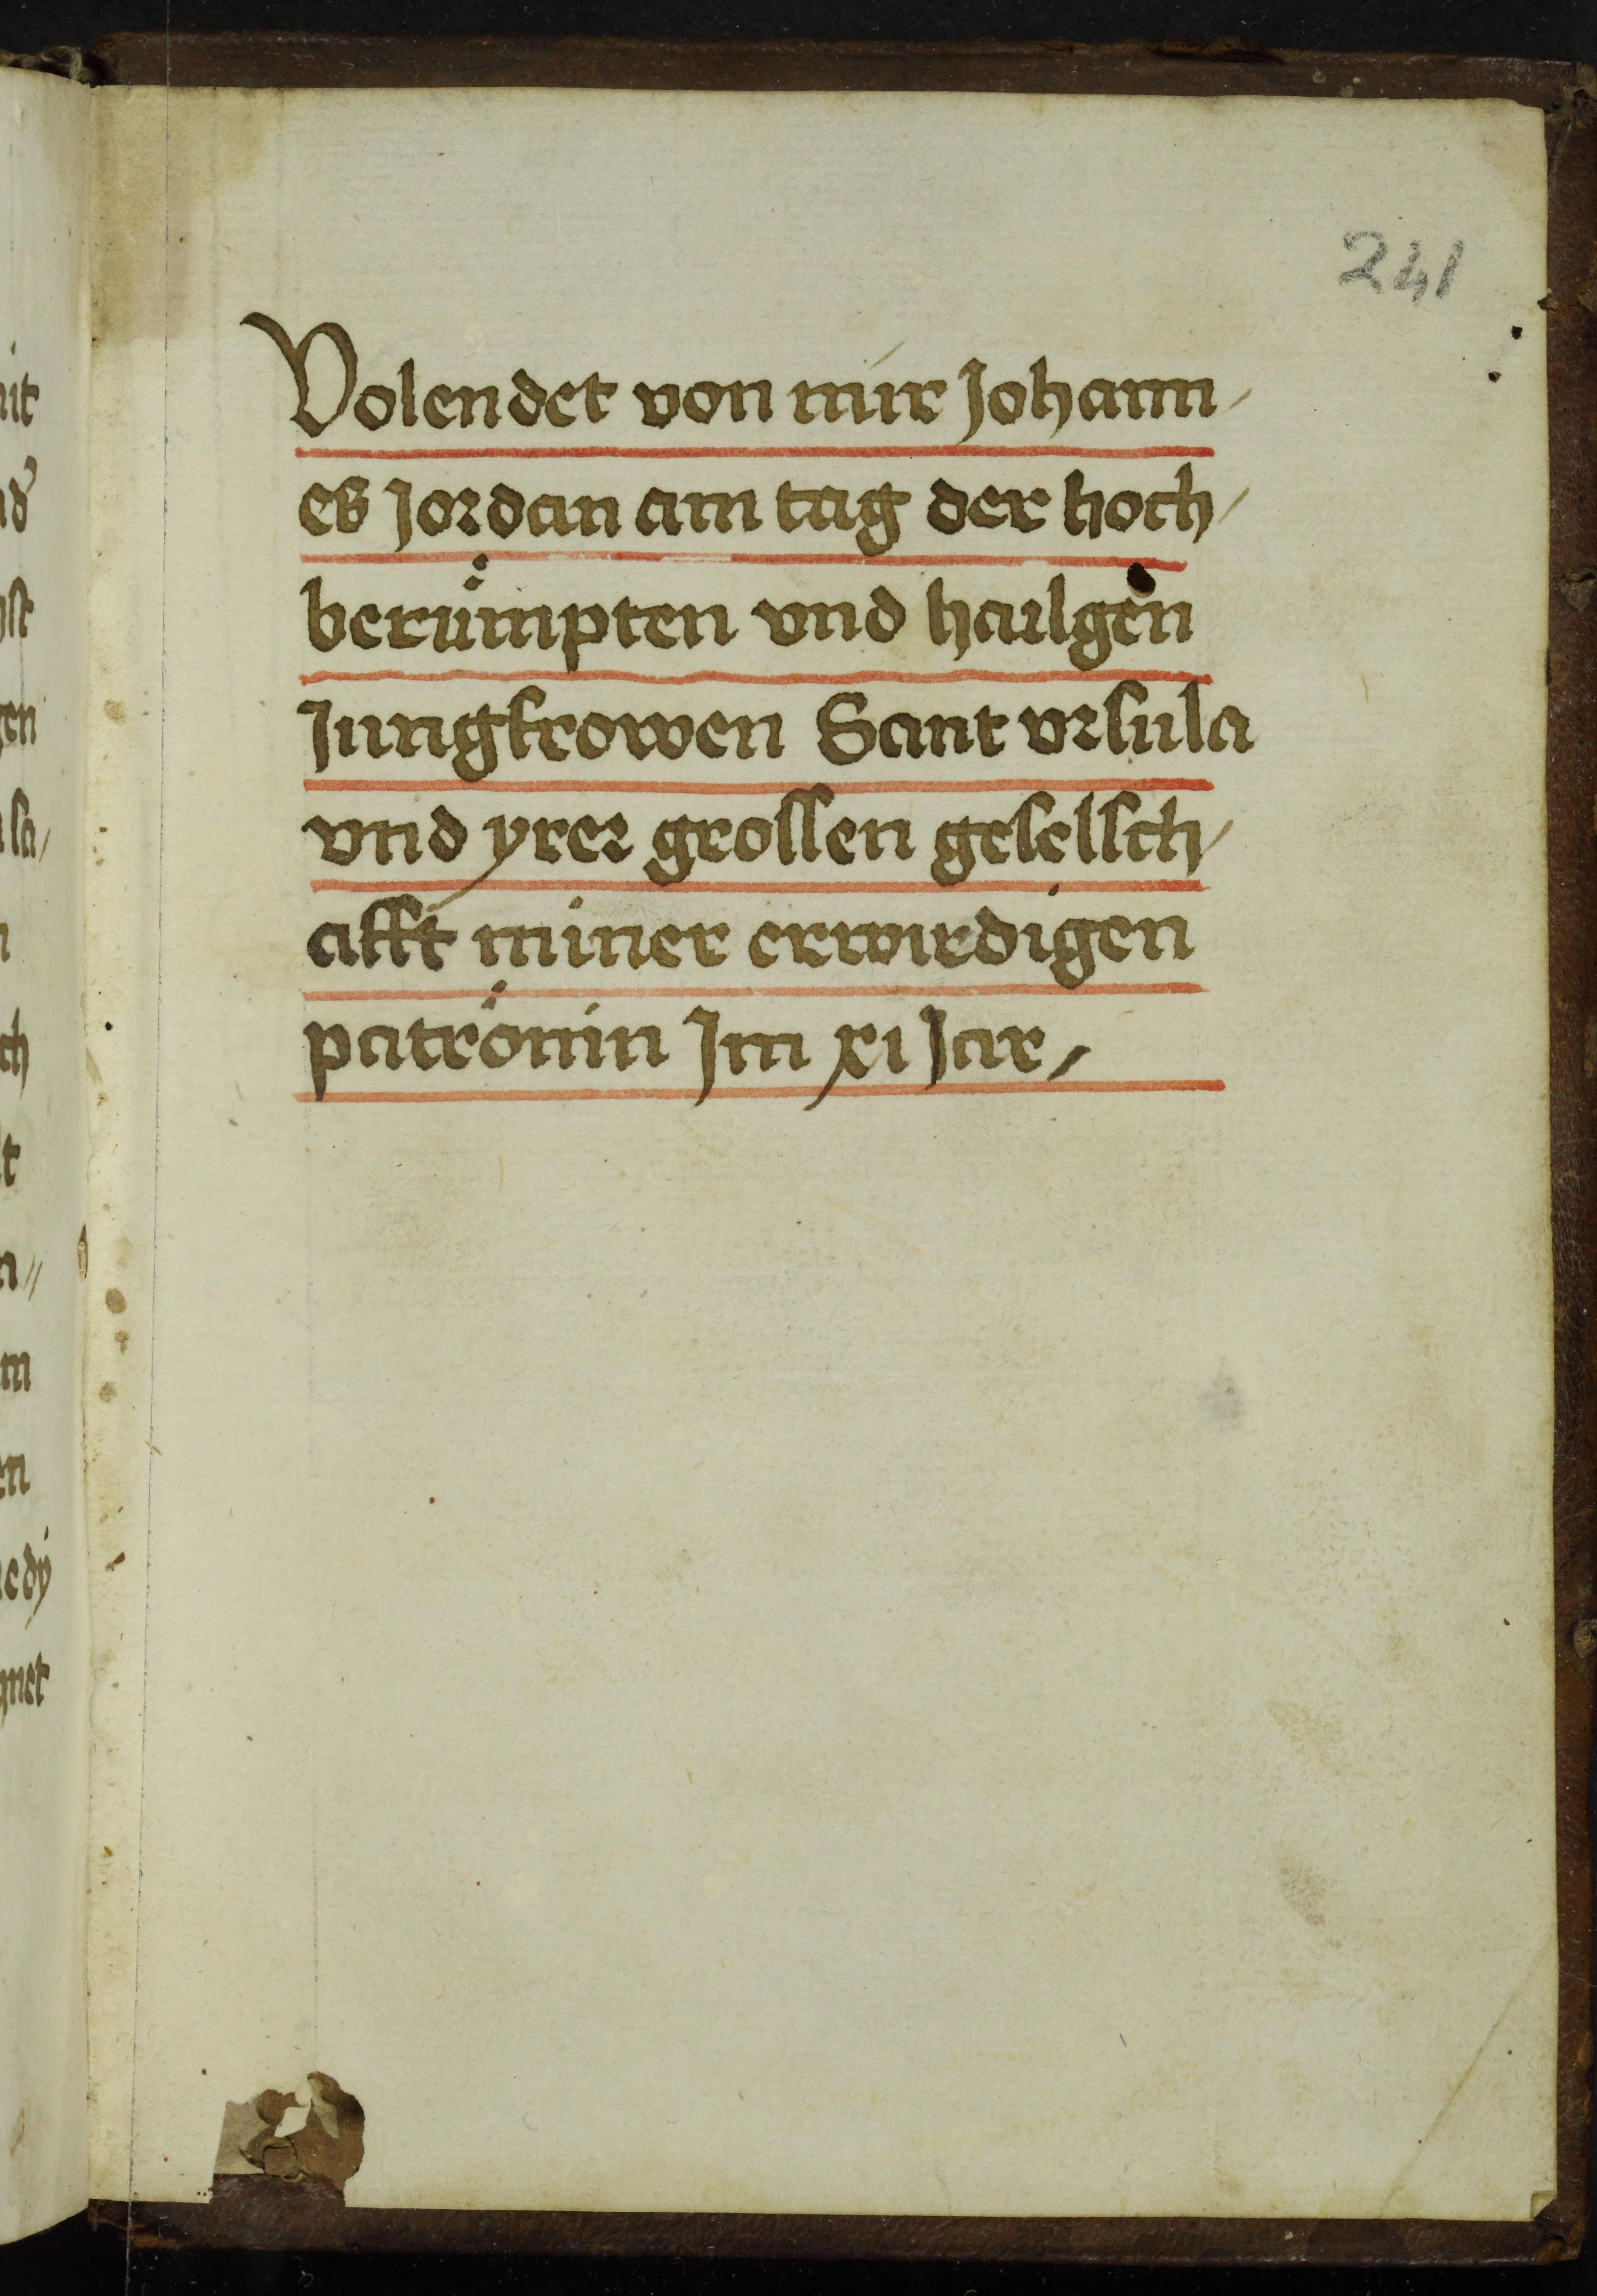 241
Volendet von mir Johann/
es Jordan am tag der hoch/
berümpten vnd hailgen
Jungfrowen Sant vrsula
vnd yrer grossen gesellsch/
afft miner erwirdigen
patrönin Jm xi Jar/